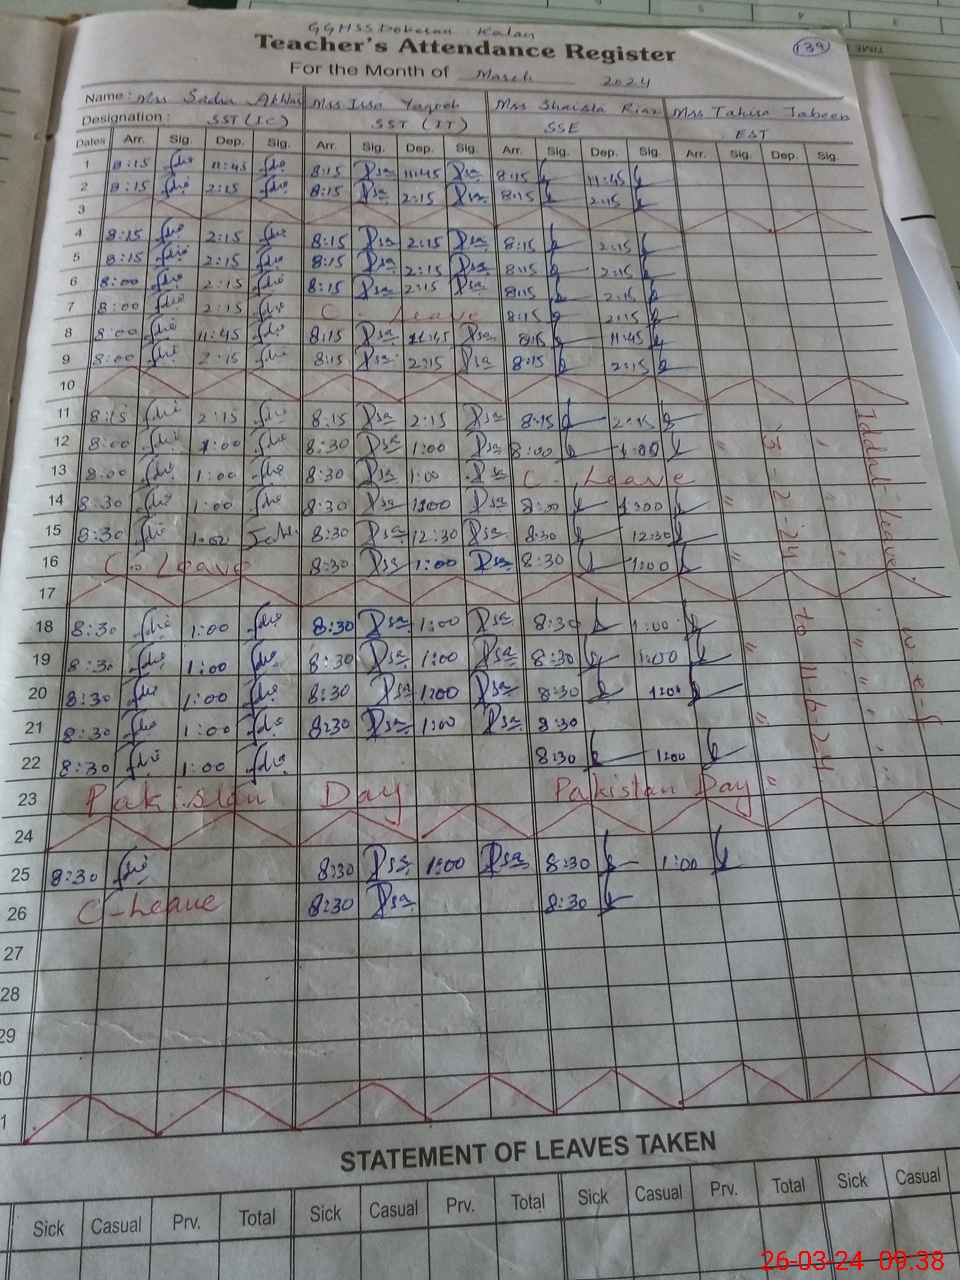 GGHSS Doberan Kalan
Teacher's Attendance Register
139
For the Month of March 2024
Name: Mrs Sadia Akhtar Mrs Irsa Yaqoob Mrs Shaista Riaz Mrs Tahira Jabeen
Designation: SST (IC) SST (IT) SSE EST
Dates Arr. Sig. Dep. Sig. Arr. Sig. Dep. Sig. Arr. Sig. Dep. Sig. Arr. Sig. Dep. Sig.
1 8:15 11:45 8:15 11:45 8:15 11:45
2 8:15 2:15 8:15 2:15 8:15 2:15
3
4 8:15 2:15 8:15 2:15 8:15 2:15
5 8:15 2:15 8:15 2:15 8:15 2:15
6 8:00 2:15 8:15 2:15 8:15 2:15
7 8:00 2:15 C. Leave 8:15 2:15
8 8:00 11:45 8:15 11:45 8:15 11:45
9 8:00 2:15 8:15 2:15 8:15 2:15
10
11 8:15 2:15 8:15 2:15 8:15 2:15
12 8:00 1:00 8:30 1:00 8:00 1:00
13 8:00 1:00 8:30 1:00 C. Leave
14 8:30 1:00 8:30 1:00 8:00 1:00
15 8:30 1:00 8:30 12:30 8:30 12:30
16 C. Leave 8:30 1:00 8:30 1:00
17
18 8:30 1:00 8:30 1:00 8:30 1:00
19 8:30 1:00 8:30 1:00 8:30 1:00
20 8:30 1:00 8:30 1:00 8:30 1:00
21 8:30 1:00 8:30 1:00 8:30
22 8:30 1:00 8:30 1:00
23 Pakistan Day Pakistan Day
24
25 8:30 8:30 1:00 8:30 1:00
26 C-Leave 8:30 8:30
27
28
29
30
31
Iddat-Leave w-e-f
-2-24 to 11-6-24
STATEMENT OF LEAVES TAKEN
Sick Casual Prv. Total Sick Casual Prv. Total Sick Casual Prv. Total Sick Casual
26-03-24 09:38